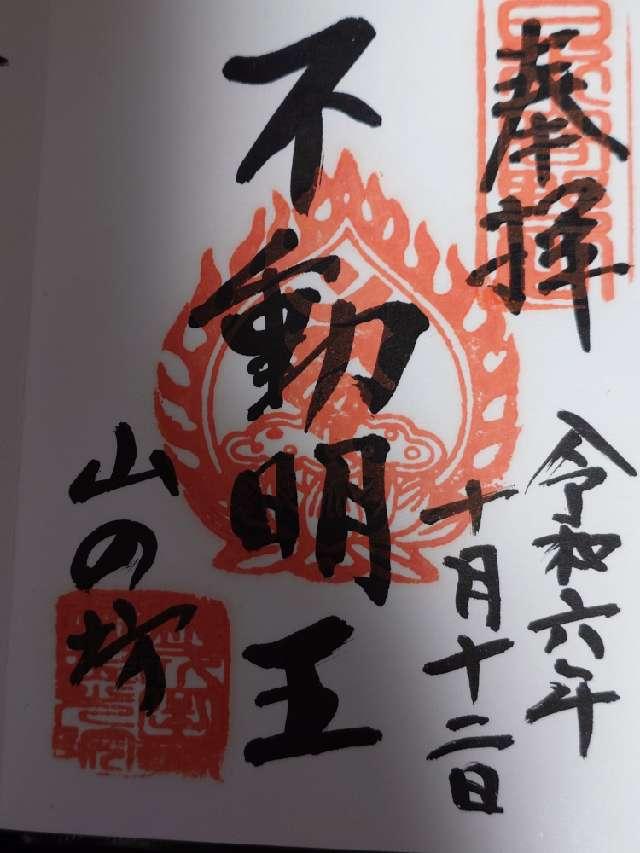 奉拝
令和六年
十月十二日
不動明王
山の坊